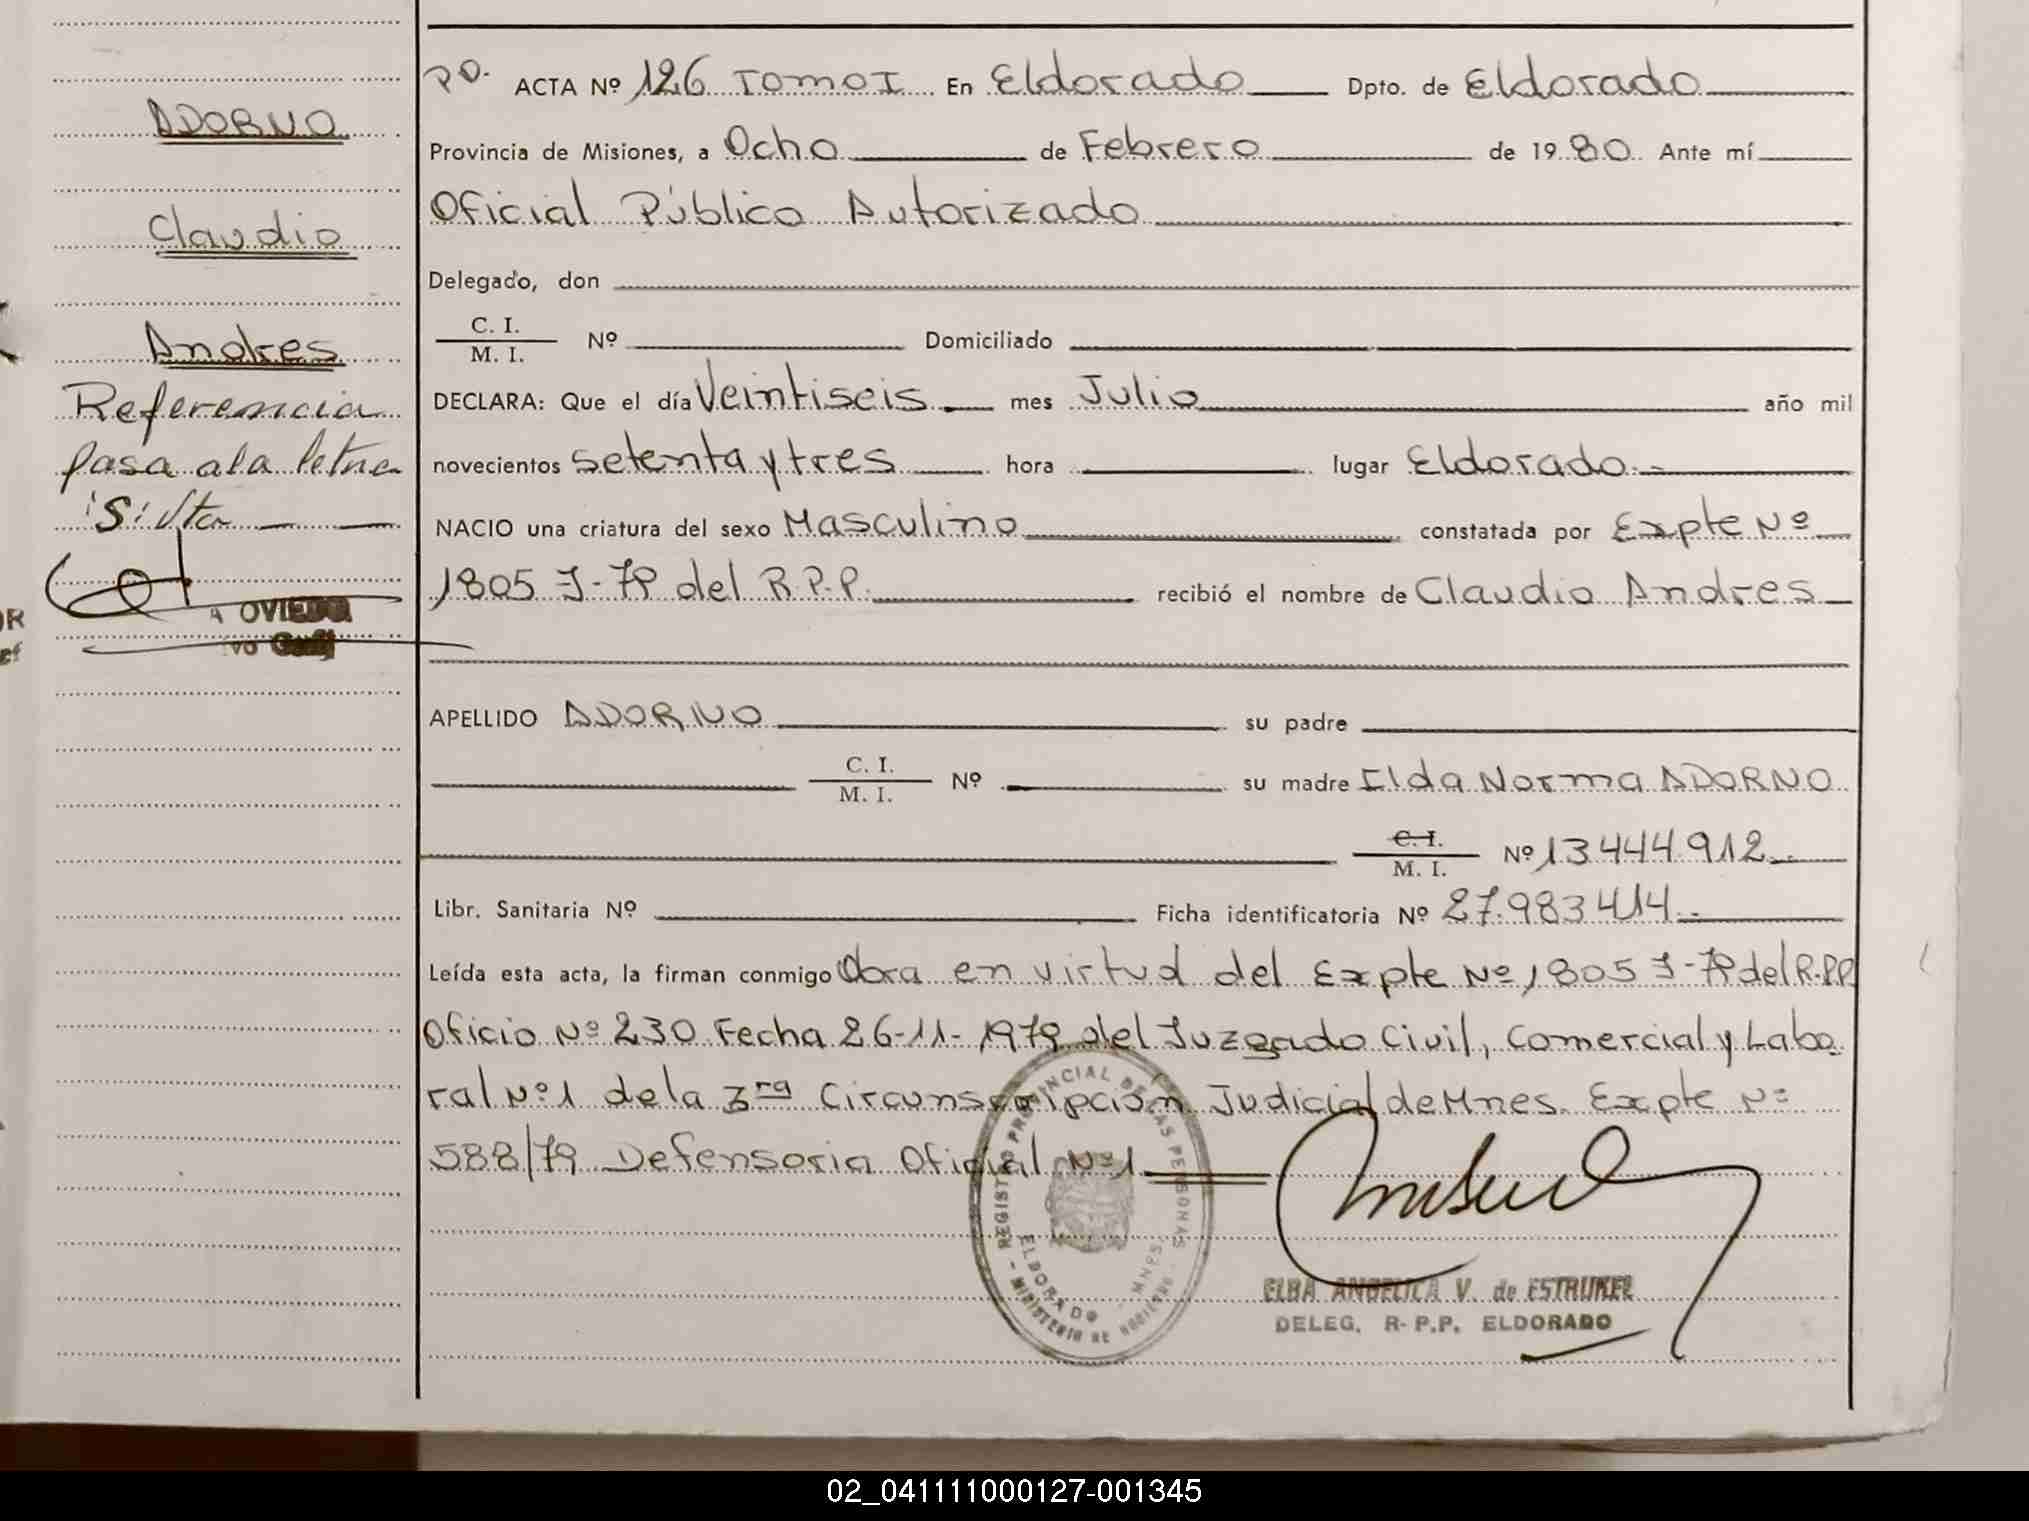 ADORNO
Claudio
Andres
Referencia
pasa a la letra
"S" Vta
A OVIEDO
PD. ACTA Nº 126 TOMO I En Eldorado Dpto. de Eldorado
Provincia de Misiones, a Ocho de Febrero de 1980 Ante mí
Oficial Público Autorizado
Delegado, don
C. I.
M. I. Nº Domiciliado
DECLARA: Que el día Veintiseis mes Julio año mil
novecientos setenta y tres hora lugar Eldorado.-
NACIO una criatura del sexo Masculino constatada por Expte Nº
1805 J-79 del R.P.P. recibió el nombre de Claudio Andres
APELLIDO ADORNO su padre
C. I.
M. I. Nº su madre Ilda Norma ADORNO
C. I.
M. I. Nº 13.444.912.-
Libr. Sanitaria Nº Ficha identificatoria Nº 27.983.414.-
Leída esta acta, la firman conmigo Obra en virtud del Expte Nº 1805 J-79 del R.P.P.
Oficio Nº 230 Fecha 26-11-1979 del Juzgado Civil, Comercial y Labo
ral Nº1 de la 3ra Circunscripción Judicial de Mnes. Expte Nº
588/79 Defensoria Oficial Nº1
REGISTRO PROVINCIAL DE LAS PERSONAS
ELDORADO - MNES.
- MINISTERIO DE GOBIERNO -
ELBA ANGELICA V. de ESTRUKEL
DELEG. R-P.P. ELDORADO
02_041111000127-001345